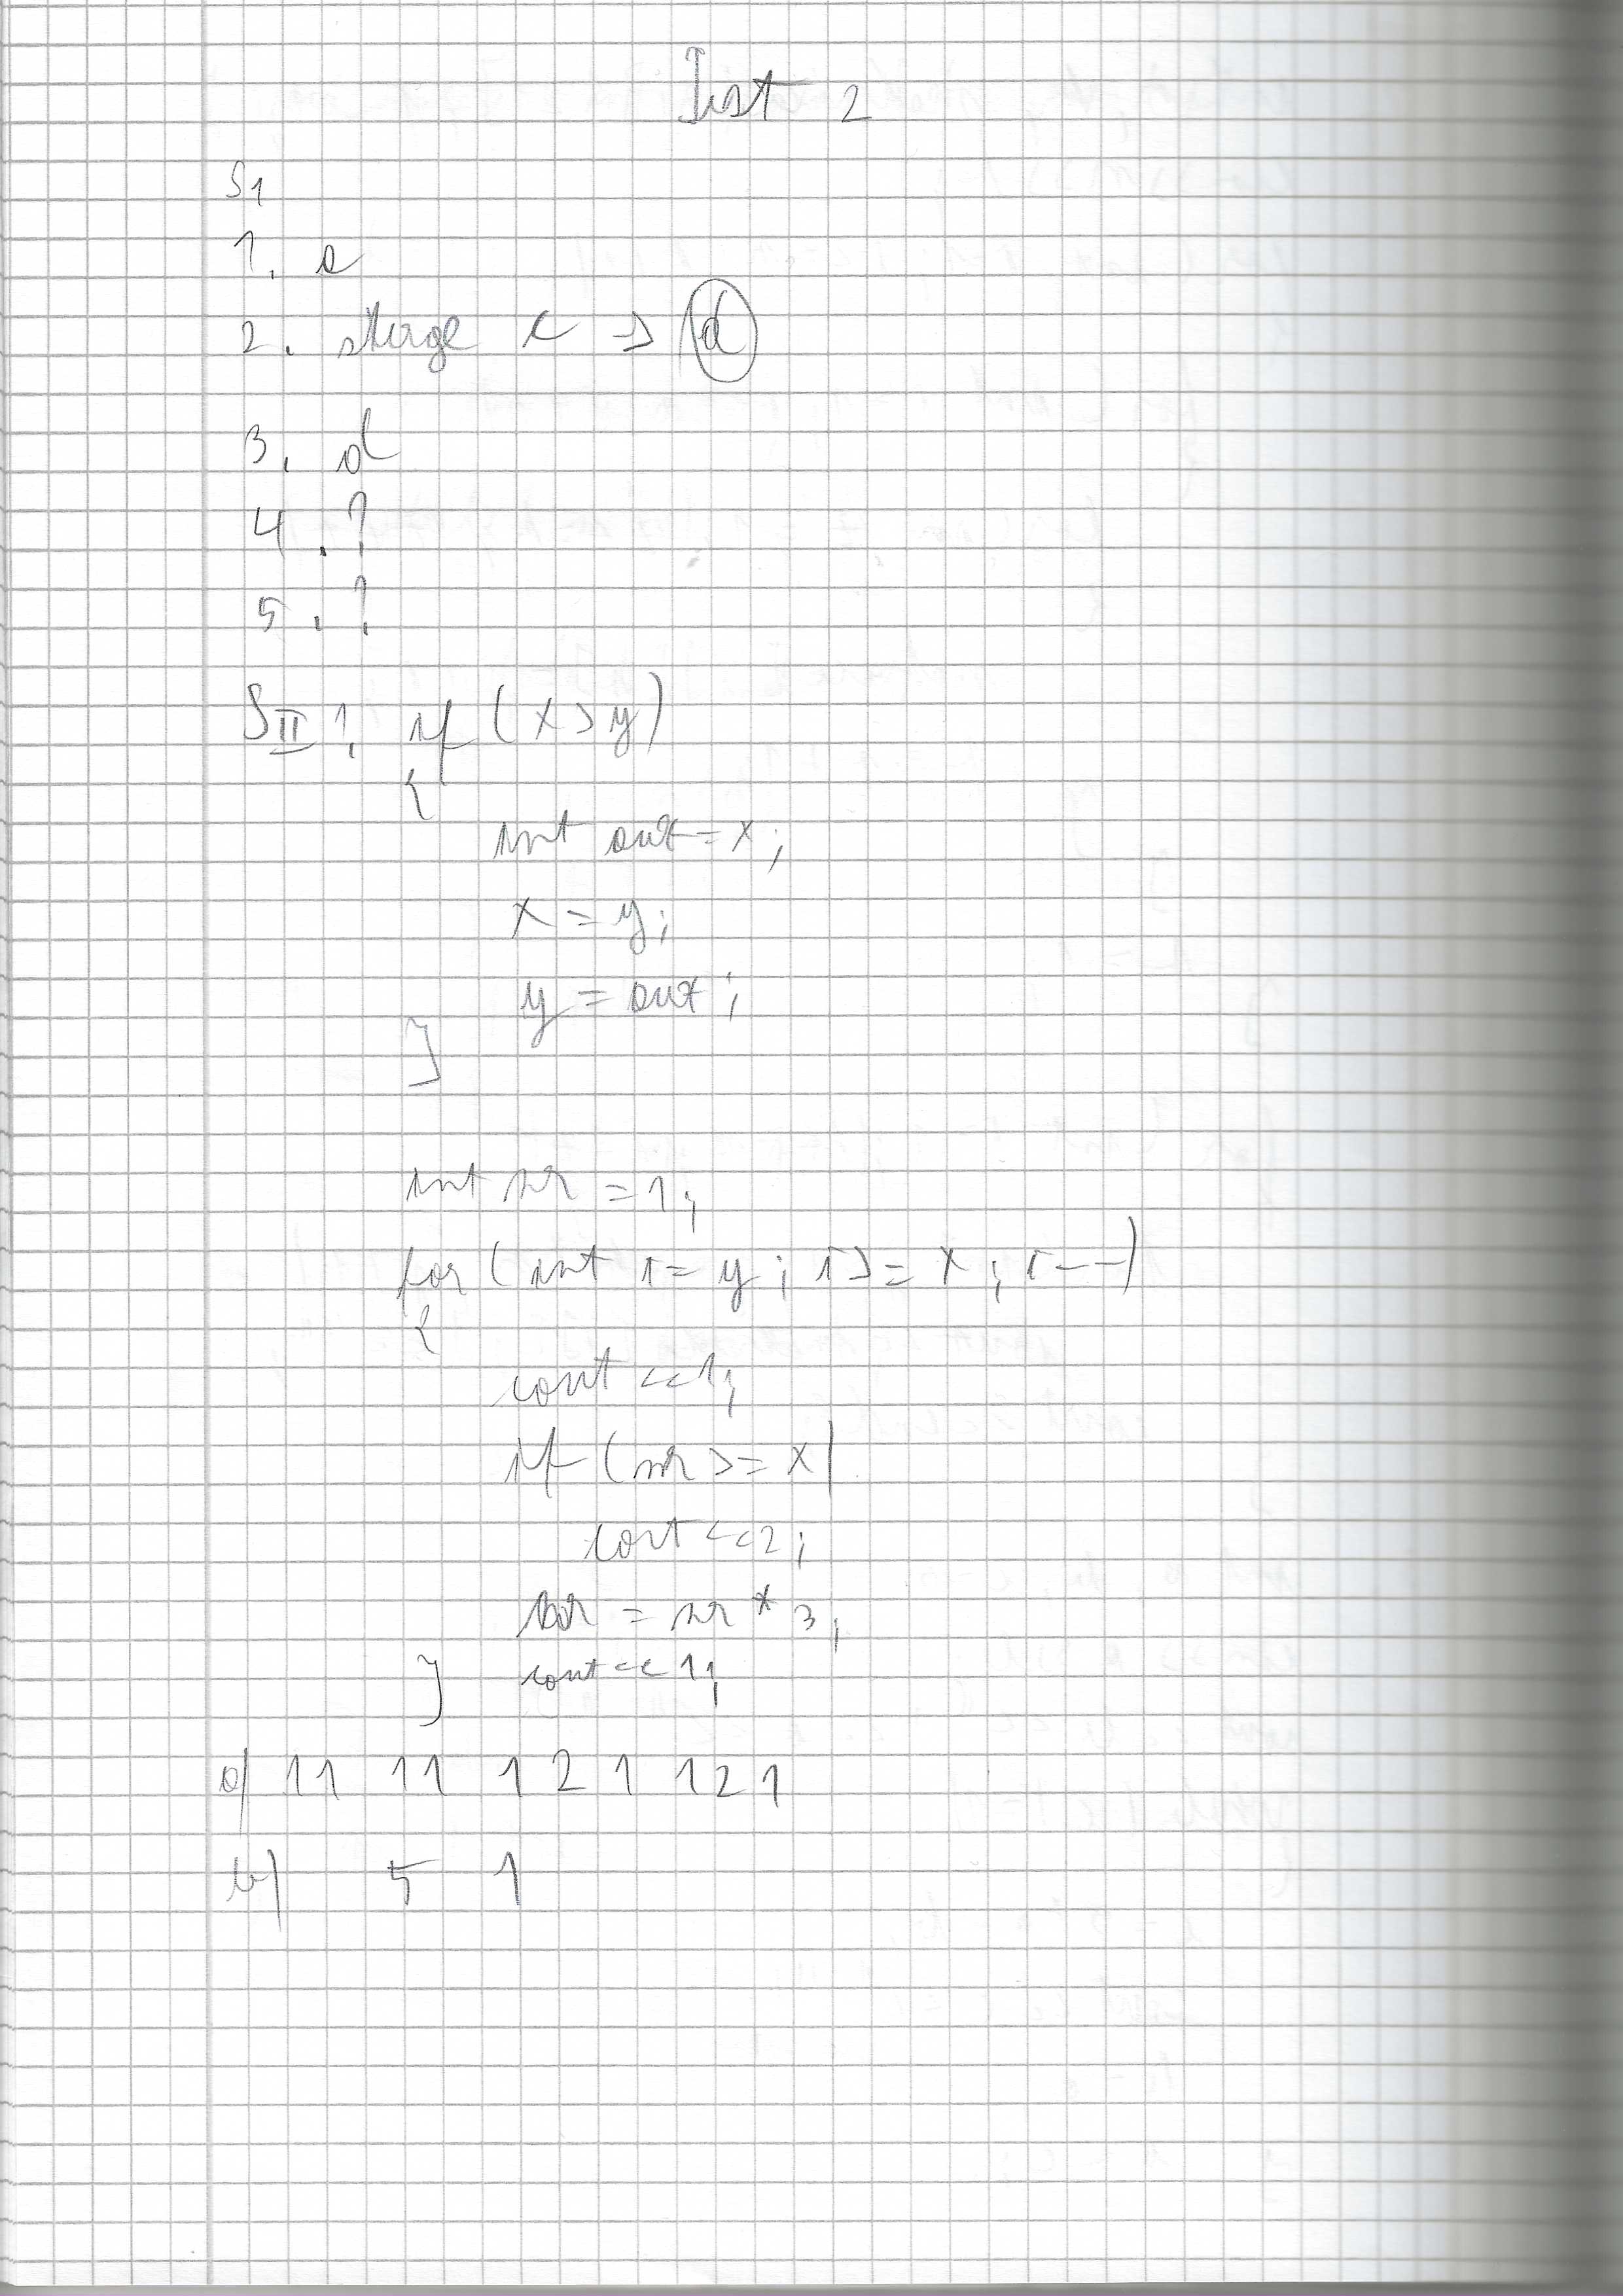 Test 2
S1
1. a
2. sterge c => d
3. d
4. ?
5. ?
SII 1. if (x>y)
{
int aux=x;
x=y;
y=aux;
}
int nr=1;
for(int i=y; i>=x; i--)
{
cout<<1;
if(nr>=x)
cout<<2;
nr=nr*3;
} cout<<1;
a) 11 11 1 2 1 1 2 1
b) 5 1